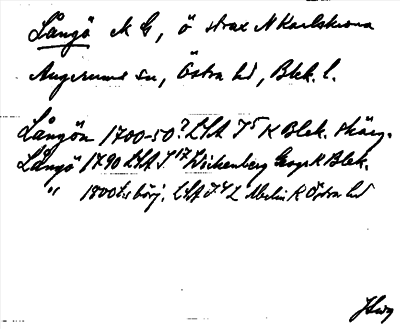 Långö N G, ö strax N Karlskrona
Augerums sn, Östra hd, Blek. l.
Långön 1700-50? LSA I 5 K Blek. skärg.
Långö 1790 LSA I 17 Wickenberg Geogr K Blek.
" 1800 t.s börj. LSA I 4 2 Abelin K Östra hd